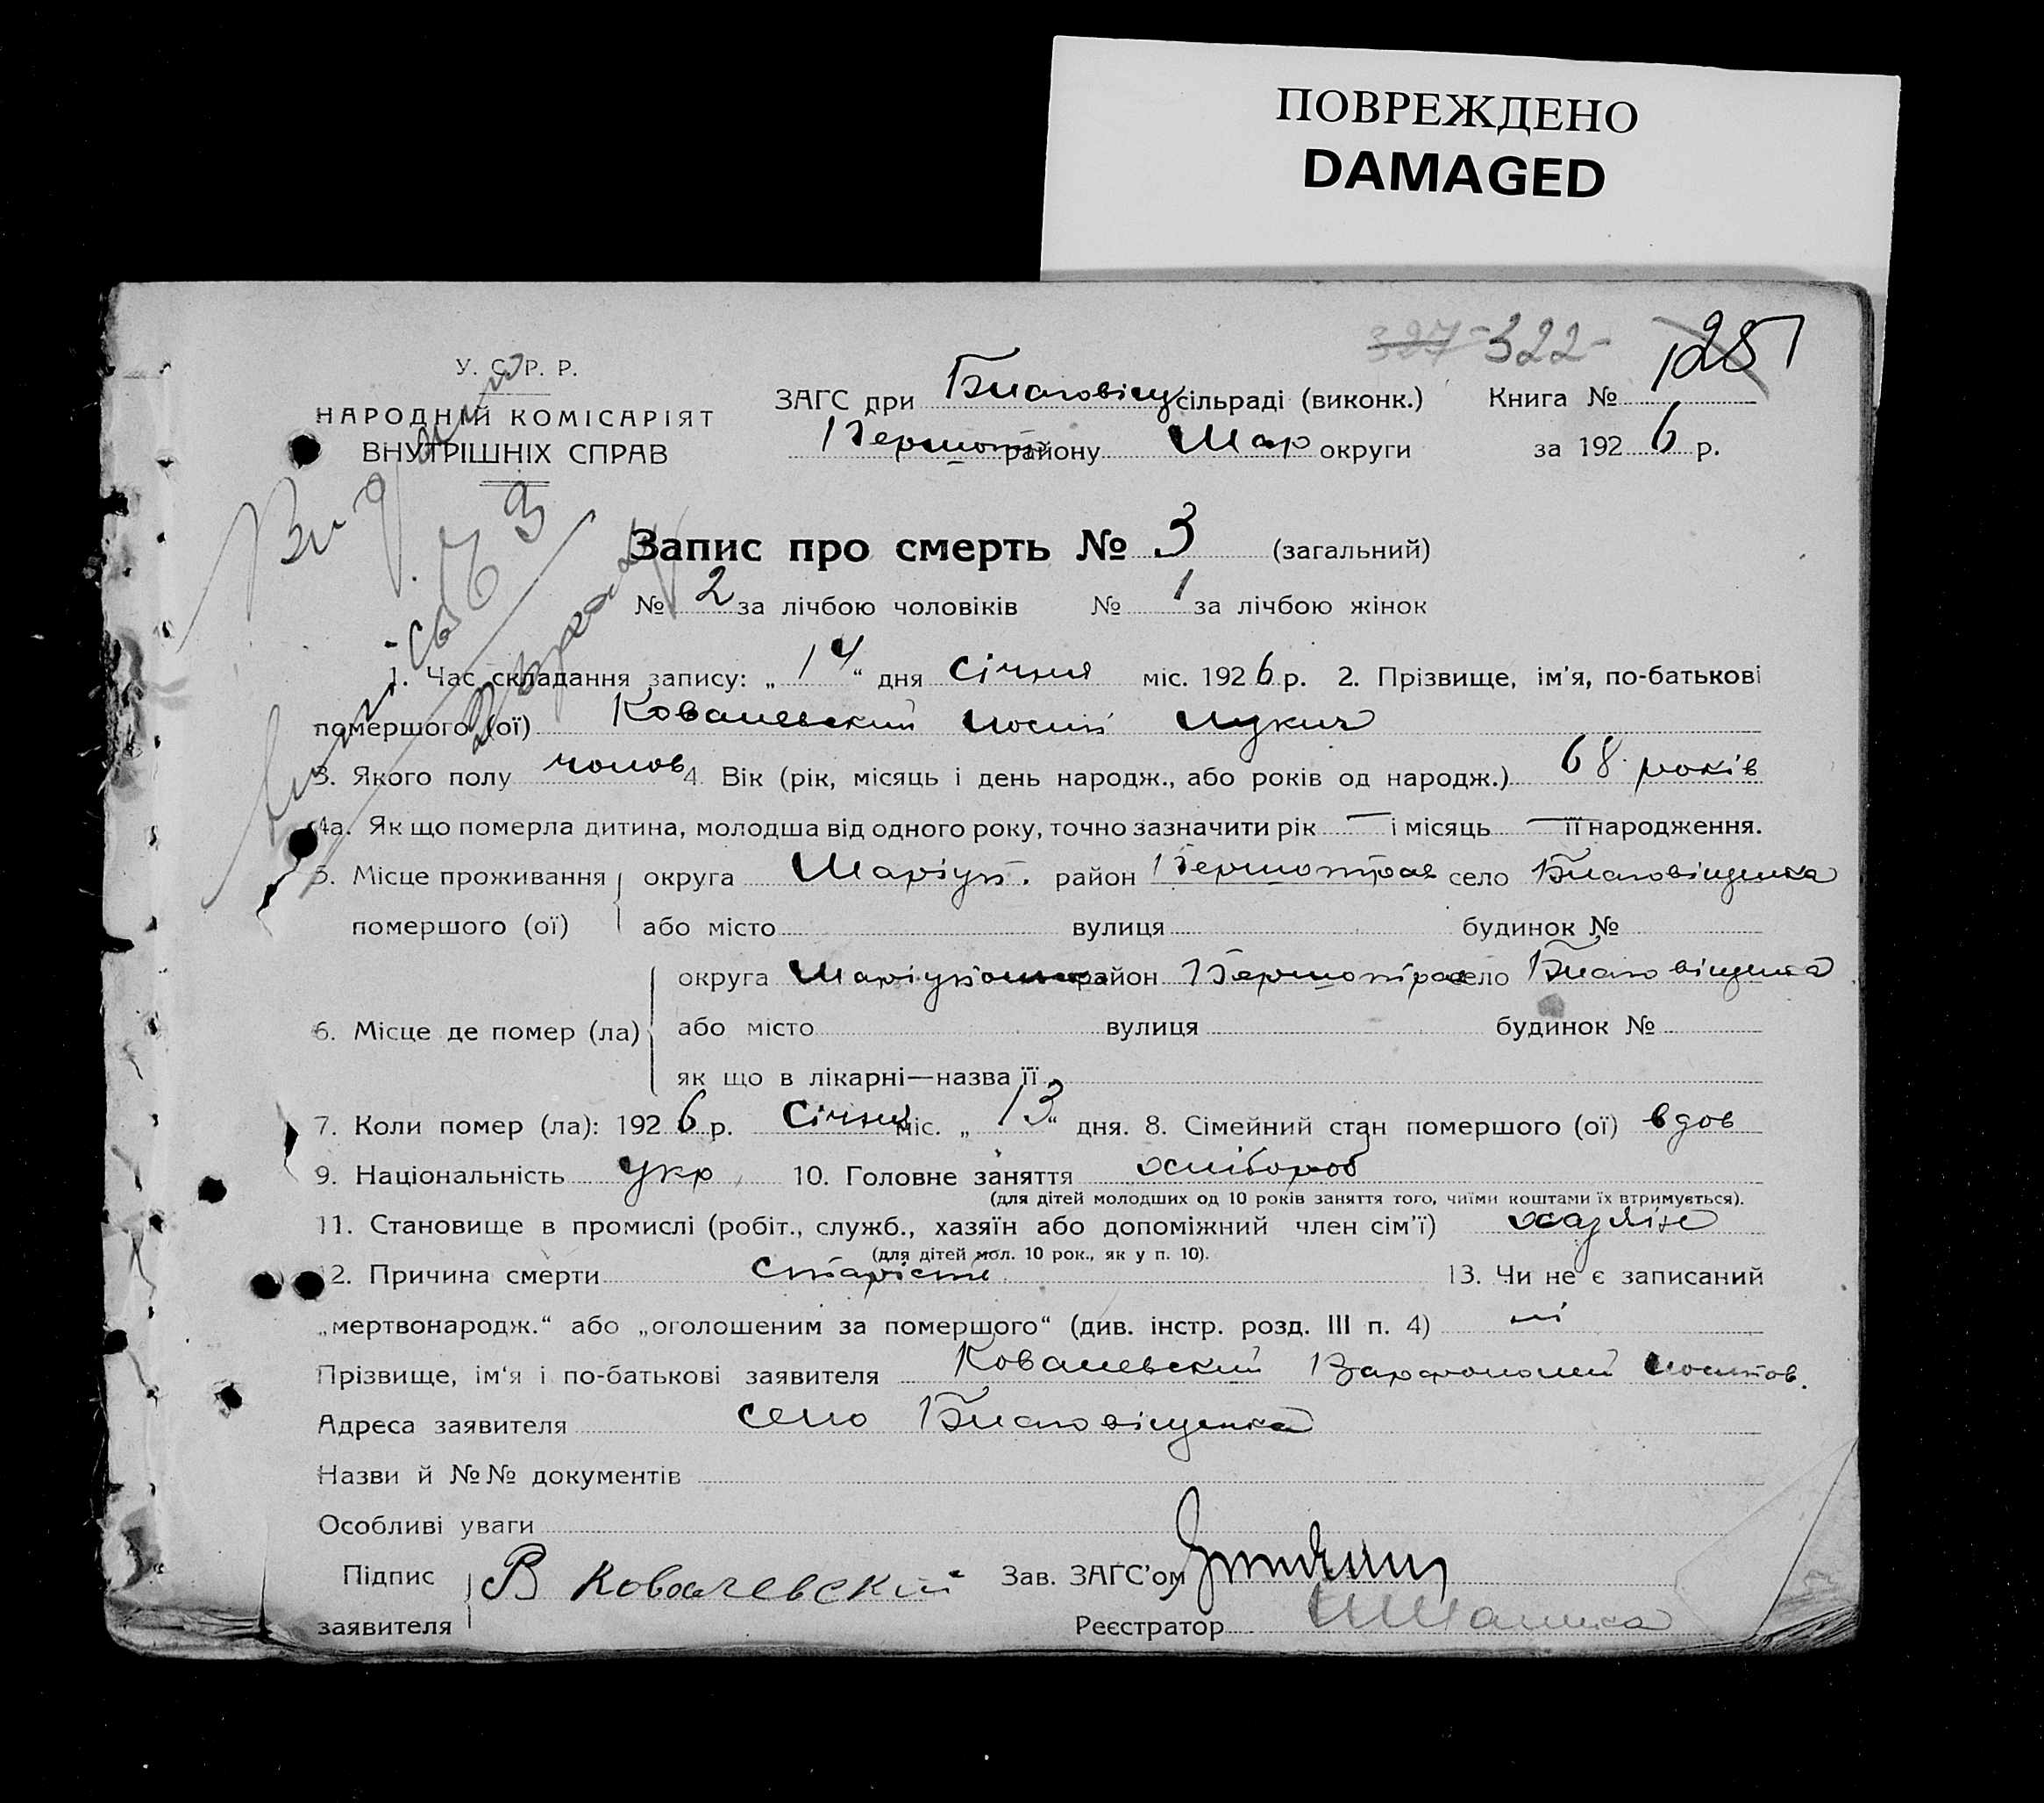 ПОВРЕЖДЕНО
DAMAGED
327 - 322 - 1281
У. С. Р. Р.
НАРОДНІЙ КОМІСАРІЯТ
ВНУТРІШНІХ СПРАВ
ЗАГС при Благовіщ сільраді (виконк.) Книга №
Першотр району Мар округи за 1926 р.
Запис про смерть № 3 (загальний)
№ 2 за лічбою чоловіків № 1 за лічбою жінок
1. Час складання запису: „14“ дня січня міс. 1926 р. 2. Прізвище, ім'я, по-батькові
помершого (ої) Ковалевский Иосип Лукич
3. Якого полу чолов 4. Вік (рік, місяць і день народж., або років од народж.) 68 років
4а. Як що померла дитина, молодша від одного року, точно зазначити рік — і місяць — її народження.
5. Місце проживання округа Маріуп. район Першотрав село Благовіщенка
помершого (ої) або місто вулиця будинок №
округа Маріупольска район Першотрав село Благовіщенка
6. Місце де помер (ла) або місто вулиця будинок №
як що в лікарні—назва її
7. Коли помер (ла): 1926 р. Січня міс. „13“ дня. 8. Сімейний стан помершого (ої) вдов
9. Національність укр 10. Головне заняття хлібороб
(для дітей молодших од 10 років заняття того, чиїми коштами їх втримується).
11. Становище в промислі (робіт., служб., хазяїн або допоміжний член сім'ї) хазяїн
(для дітей мол. 10 рок., як у п. 10).
12. Причина смерти старість 13. Чи не є записаний
„мертвонародж.“ або „оголошеним за померщого“ (див. інстр. розд. III п. 4) ні
Прізвище, ім'я і по-батькові заявителя Ковалевский Варфоломей Иосипов.
Адреса заявителя село Благовіщенка
Назви й №№ документів
Особливі уваги
Підпис В Ковалевский Зав. ЗАГС'ом
заявителя Реєстратор